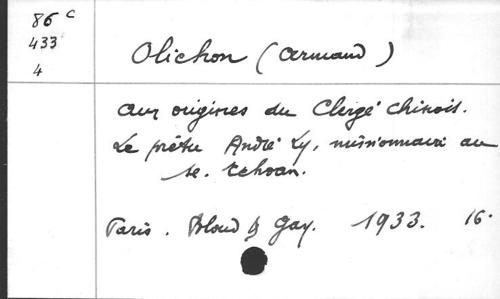 86 c
433
4
Olichon (Armand)
Aux origines du Clergé chinois.
Le prêtre André Ly, missionnaire au
Se. tchoan.
Paris. Bloud & Gay. 1933. 16°